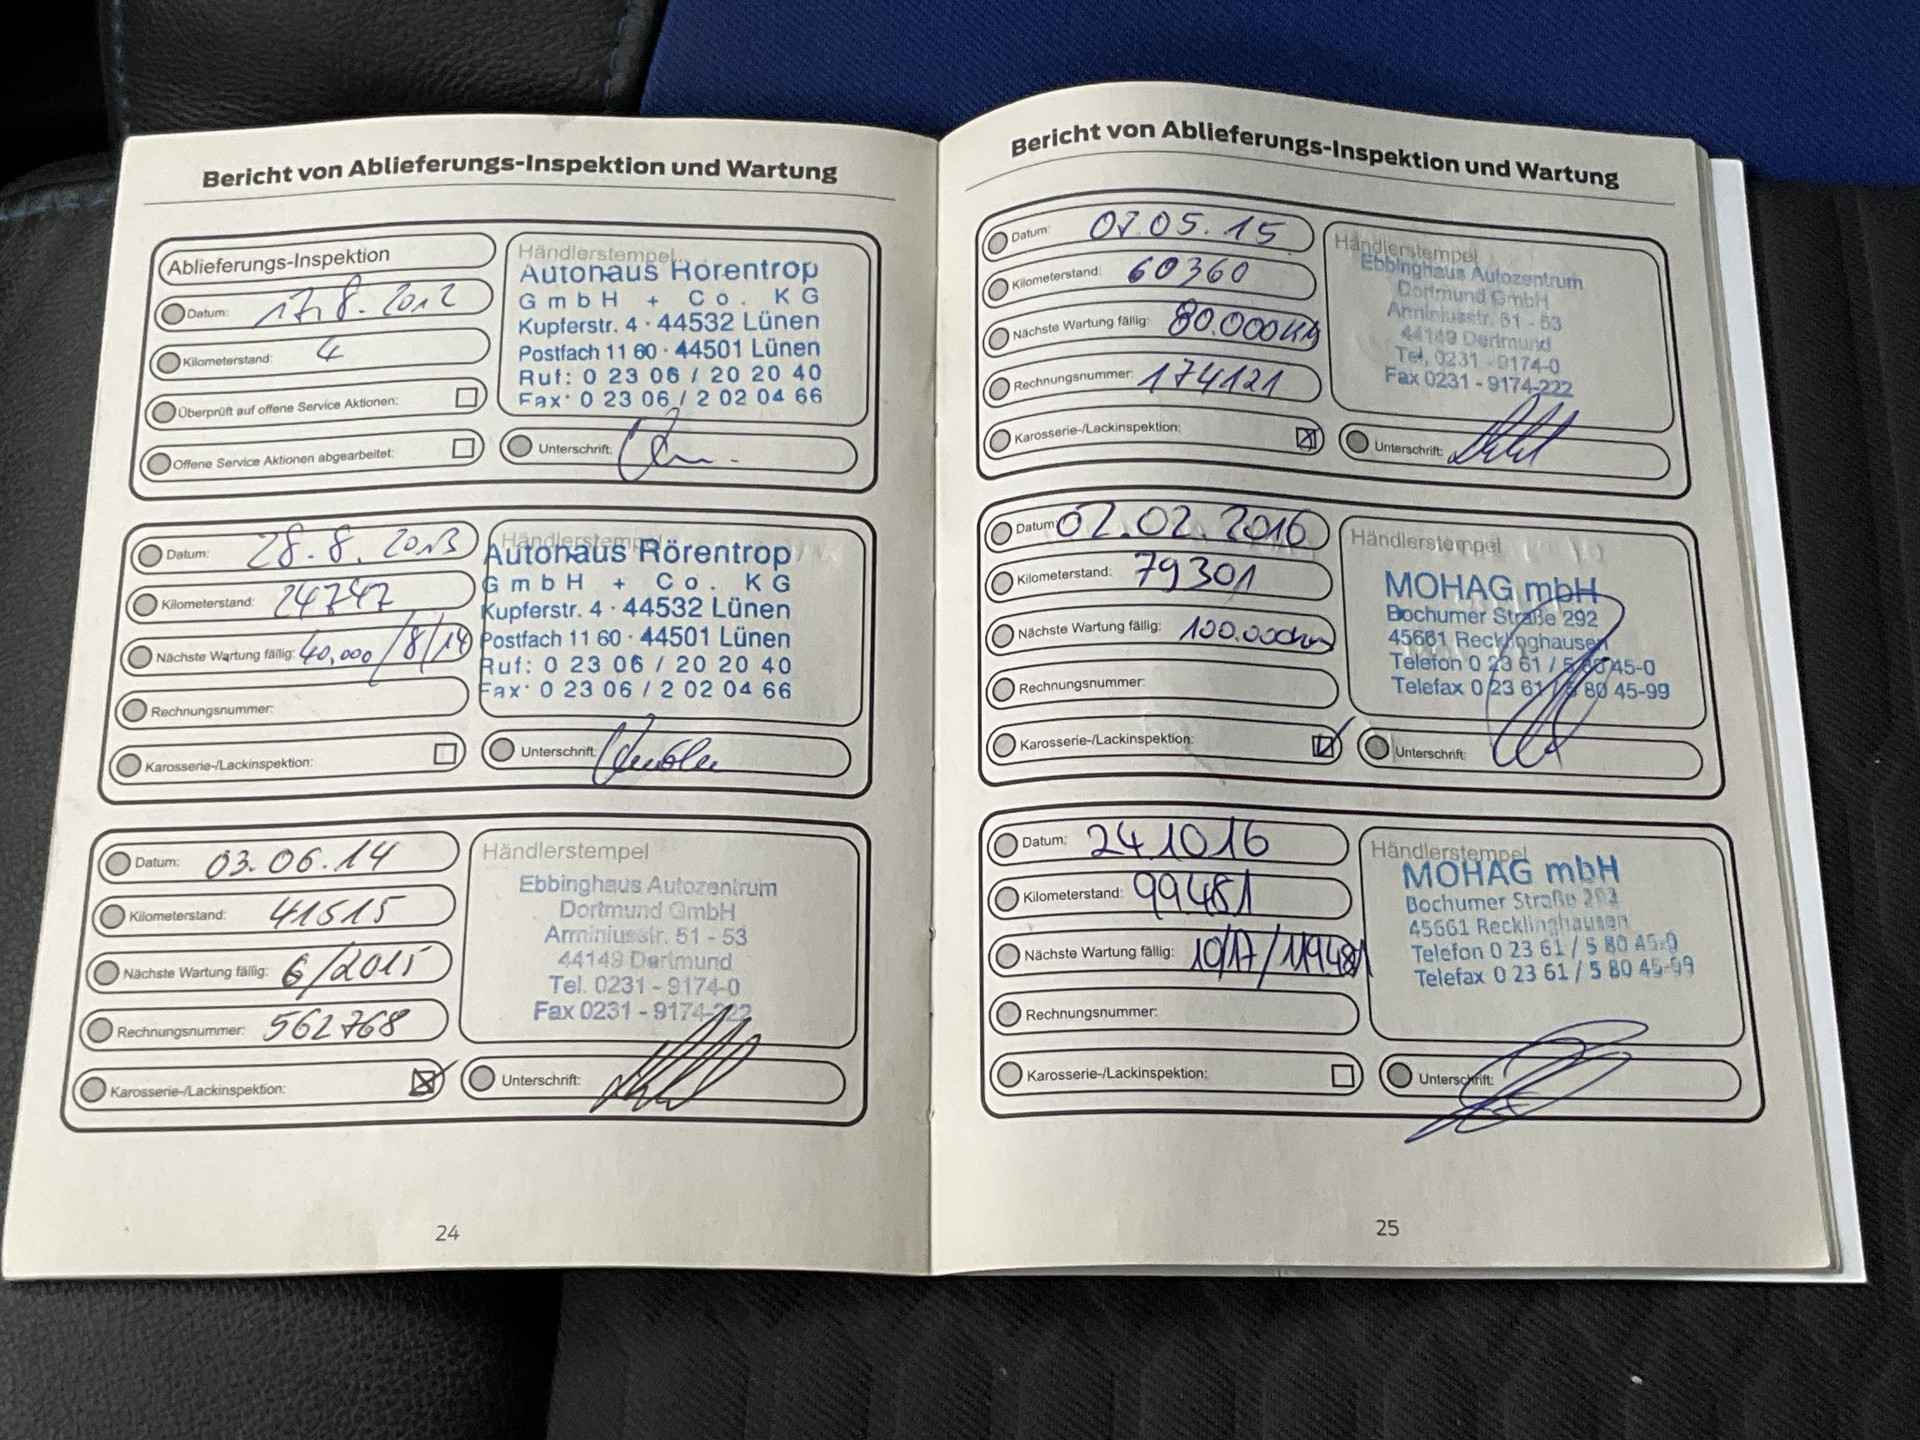 Bericht von Ablieferungs-Inspektion und Wartung
Ablieferungs-Inspektion
Datum: 17.8.2012
Kilometerstand: 4
Überprüft auf offene Service Aktionen:
Offene Service Aktionen abgearbeitet:
Händlerstempel
Autohaus Rörentrop
GmbH + Co. KG
Kupferstr. 4 · 44532 Lünen
Postfach 11 60 · 44501 Lünen
Ruf: 0 23 06 / 20 20 40
Fax: 0 23 06 / 2 02 04 66
Unterschrift:
Datum: 28.8.2013
Kilometerstand: 24747
Nächste Wartung fällig: 40,000/8/14
Rechnungsnummer:
Karosserie-/Lackinspektion:
Händlerstempel
Autohaus Rörentrop
GmbH + Co. KG
Kupferstr. 4 · 44532 Lünen
Postfach 11 60 · 44501 Lünen
Ruf: 0 23 06 / 20 20 40
Fax: 0 23 06 / 2 02 04 66
Unterschrift:
Datum: 03.06.14
Kilometerstand: 41515
Nächste Wartung fällig: 6/2015
Rechnungsnummer: 562768
Karosserie-/Lackinspektion:
Händlerstempel
Ebbinghaus Autozentrum
Dortmund GmbH
Arminiusstr. 51 - 53
44149 Dortmund
Tel. 0231 - 9174-0
Fax 0231 - 9174-222
Unterschrift:
24
Bericht von Ablieferungs-Inspektion und Wartung
Datum: 07.05.15
Kilometerstand: 60360
Nächste Wartung fällig: 80.000km
Rechnungsnummer: 174121
Karosserie-/Lackinspektion:
Händlerstempel
Ebbinghaus Autozentrum
Dortmund GmbH
Arminiusstr. 51 - 53
44149 Dortmund
Tel. 0231 - 9174-0
Fax 0231 - 9174-222
Unterschrift:
Datum: 02.02.2016
Kilometerstand: 79301
Nächste Wartung fällig: 100.000km
Rechnungsnummer:
Karosserie-/Lackinspektion:
Händlerstempel
MOHAG mbH
Bochumer Straße 292
45661 Recklinghausen
Telefon 0 23 61 / 5 80 45-0
Telefax 0 23 61 / 5 80 45-99
Unterschrift:
Datum: 241016
Kilometerstand: 99481
Nächste Wartung fällig: 10/17/119481
Rechnungsnummer:
Karosserie-/Lackinspektion:
Händlerstempel
MOHAG mbH
Bochumer Straße 292
45661 Recklinghausen
Telefon 0 23 61 / 5 80 45-0
Telefax 0 23 61 / 5 80 45-99
Unterschrift:
25